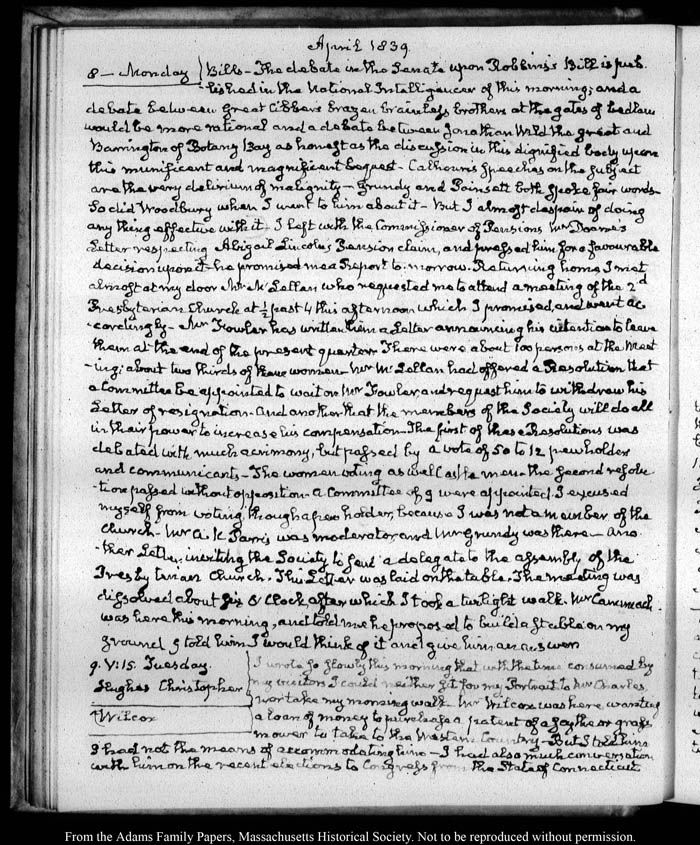 April 1839.
8 - Monday Bills - The debate in the Senate upon Robbins's Bill is pub-
-lished in the National Intelligencer of this morning; and a
debate between great Cibber's brazen brainless brothers at the gates of bedlam
would be more rational and a debate between Jonathan Wild the great and
Barrington of Botany Bay as honest as the discussion in this dignified body upon
this munificent and magnificent bequest - Calhoun's speeches on the subject
are the very delirium of malignity - Grundy and Poinsett both spoke fair words
So did Woodbury when I went to him about it - But I almost despair of doing
any thing effective with it - I left with the Commissioner of Pensions Mr Doane's
Letter respecting Abigail Lincoln's Pension claim, and pressed him for a favourable
decision upon it - he promised me a Report to-morrow. Returning home I met
almost at my door Mr McLellan who requested me to attend a meeting of the 2d
Presbyterian Church at ½ past 4 this afternoon which I promised, and went ac-
-cordingly - Mr Fowler has written them a Letter announcing his intention to leave
them at the end of the present quarter. There were about 100 persons at the Meet-
-ing; about two thirds of them women - Mr McLellan had offered a Resolution that
a Committee be appointed to wait on Mr Fowler, and request him to withdraw his
Letter of resignation. And another that the members of the Society will do all
in their power to increase his compensation - The first of these Resolutions was
debated with much acrimony, but passed by a vote of 50 to 12 pewholders
and communicants - The women voting as well as the men - the second resolu-
-tion passed without opposition - a Committee of 9 were appointed. I excused
myself from voting, though a pew holder, because I was not a member of the
Church - Mr A. K Parris was moderator, and Mr Grundy was there - Ano-
-ther Letter, inviting the Society to send a delegate to the assembly of the
Presbyterian Church. This Letter was laid on the table. The meeting was
dissolved about six O'Clock after which I took a twilight walk. Mr Cammack
was here this morning, and told me he proposed to build a stable on my
ground I told him I would think of it and give him an answer
9. V:15. Tuesday.
Hughes Christopher
+ Wilcox
I wrote so slowly this morning that with the time consumed by
my visitors I could neither sit for my Portrait to Mr Charles,
nor take my morning walk. Mr Wilcox was here, wanting
a loan of money to purchase a patent of a scythe or grass
mower to take to the Western Country - But I told him
I had not the means of accommodating him - I had also much conversation
with him on the recent elections to Congress from the State of Connecticut
From the Adams Family Papers, Massachusetts Historical Society. Not to be reproduced without permission.